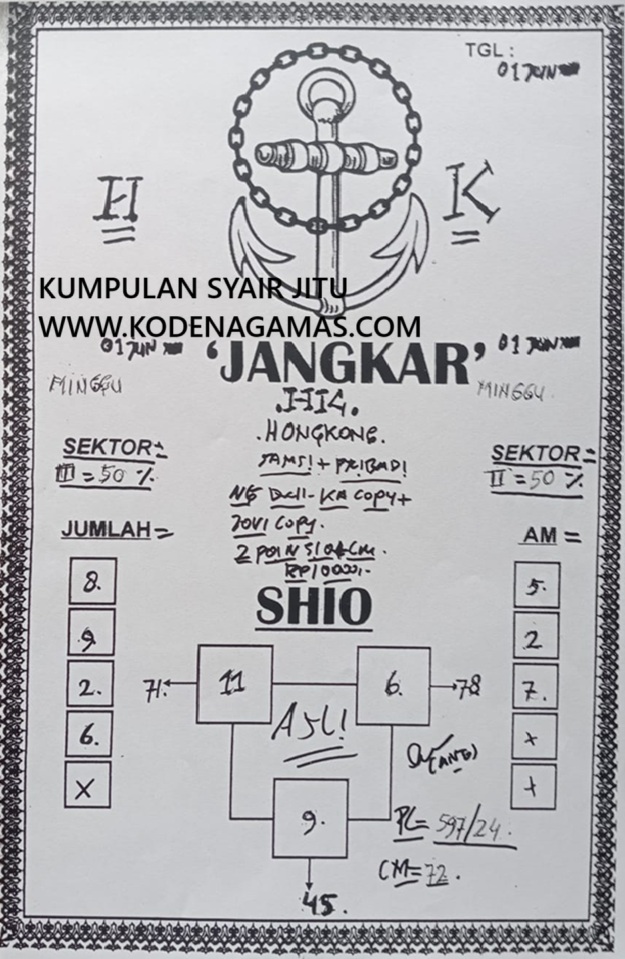 TGL :
01 JUN
H
K
KUMPULAN SYAIR JITU
WWW.KODENAGAMAS.COM
01 JUN
'JANGKAR'
01 JUN
MINGGU
MINGGU
.HK.
.HONGKONG.
SEKTOR=
III = 50 %
SEKTOR=
II = 50 %
COPY +
COPY.
2 POIN
JUMLAH=
AM =
8.
9
2.
6.
X
5.
2
7.
+
+
SHIO
71.
11
6.
78
ASLI
9.
45.
PL= 597/24.
CM=72.